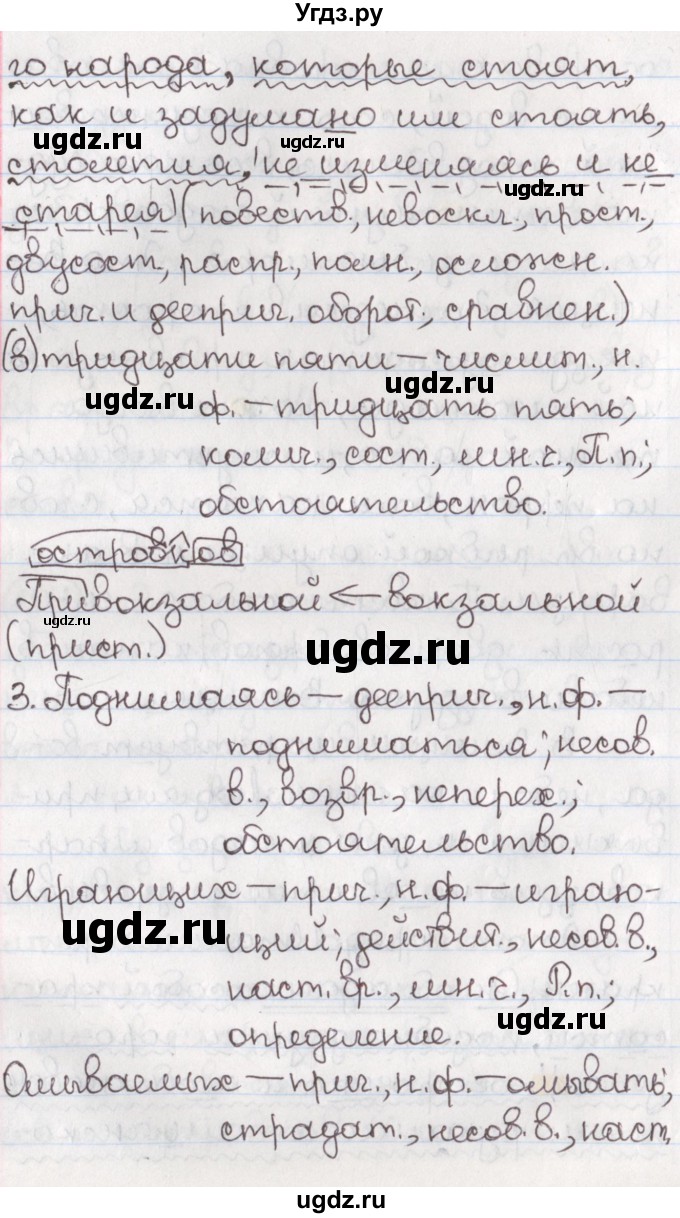 Угдз.ру
го народа, которые стоят,
как и задумано им стоять,
столетия, не изменяясь и не
старея (повеств., невоскл., прост.,
двусост., распр., полн., осложн.
прич. и дееприч. оборот., сравнен.)
(в) тридцати пяти – числит., н.
ф. – тридцать пять;
колич., сост., мн.ч., П.п.;
обстоятельство.
островков
Привокзальной ← вокзальной
(прист.)
3. Поднимаясь – дееприч., н.ф. –
подниматься; несов.
в., возвр., неперех.;
обстоятельство.
Играющих – прич., н.ф. – играю-
щий; действит., несов.в.,
наст. вр., мн.ч., Р.п.;
определение.
Омываемых – прич., н.ф. – омывать;
страдат., несов.в., наст.
ugdz.ru
ugdz.ru
ugdz.ru
ugdz.ru
ugdz.ru
ugdz.ru
ugdz.ru
ugdz.ru
ugdz.ru
ugdz.ru